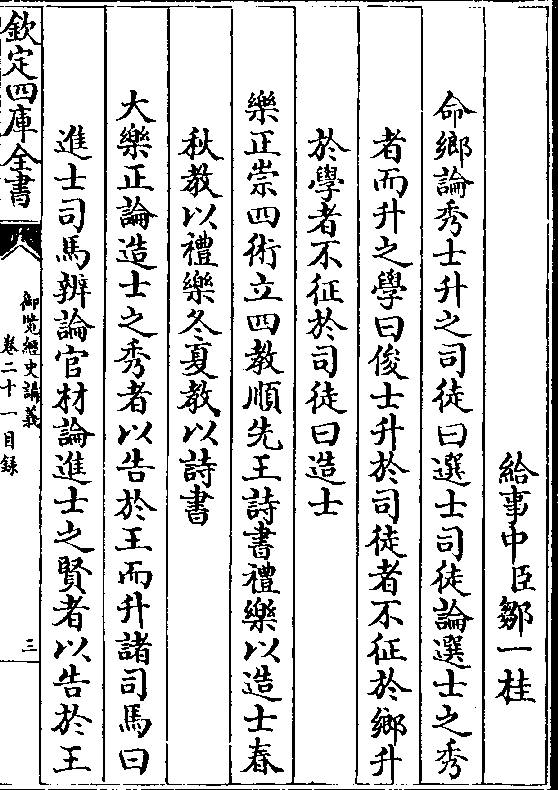 給事中臣鄒一桂
命鄉論秀士升之司徒曰選士司徒論選士之秀
者而升之學曰俊士升於司徒者不征於鄉升
於學者不征於司徒曰造士
樂正崇四術立四教順先王詩書禮樂以造士春
秋教以禮樂冬夏教以詩書
大樂正論造士之秀者以告於王而升諸司馬曰
進士司馬辨論官材論進士之賢者以告於王
欽定四庫全書
御覽經史講義
卷二十一目録
三